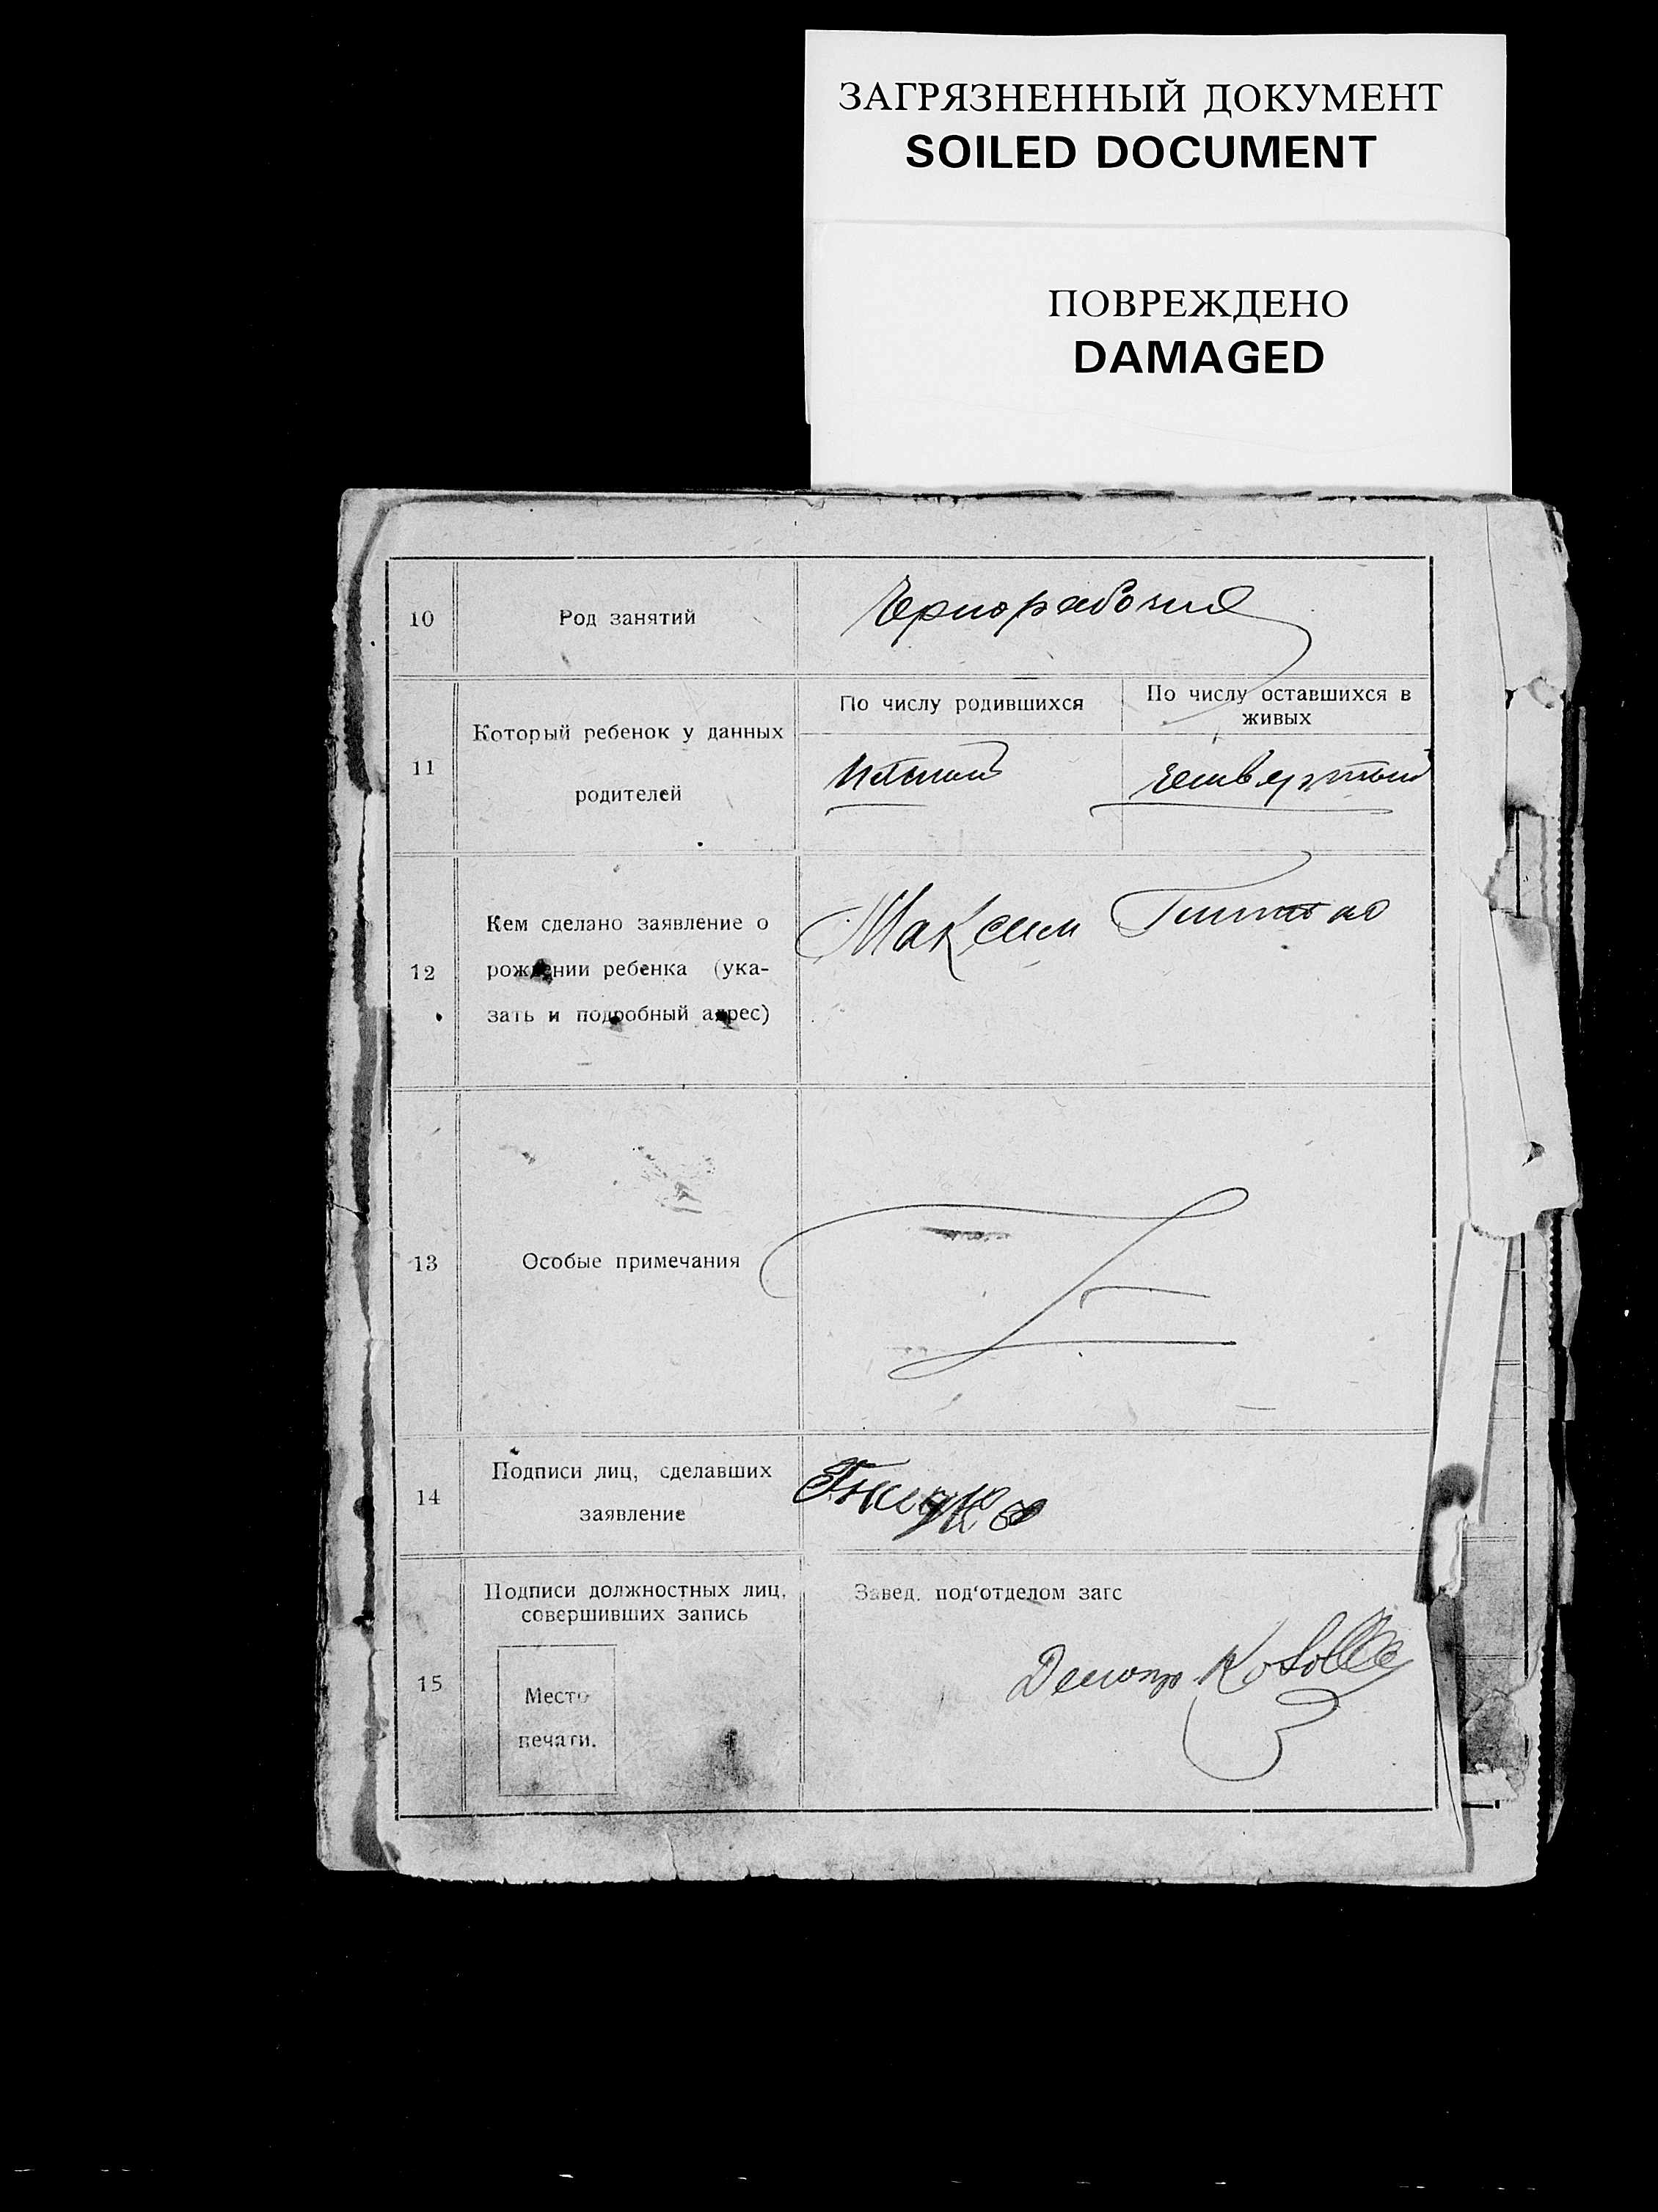 ЗАГРЯЗНЕННЫЙ ДОКУМЕНТ
SOILED DOCUMENT
ПОВРЕЖДЕНО
DAMAGED
10
Род занятий
Чернорабочий
11
Который ребенок у данных
родителей
По числу родившихся
По числу оставшихся в
живых
Пятый
Четвертый
12
Кем сделано заявление о
рождении ребенка (ука-
зать и подробный адрес)
Максим
13
Особые примечания
14
Подписи лиц, сделавших
заявление
15
Подписи должностных лиц,
совершивших запись
Место
печати.
Завед. под'отделом загс